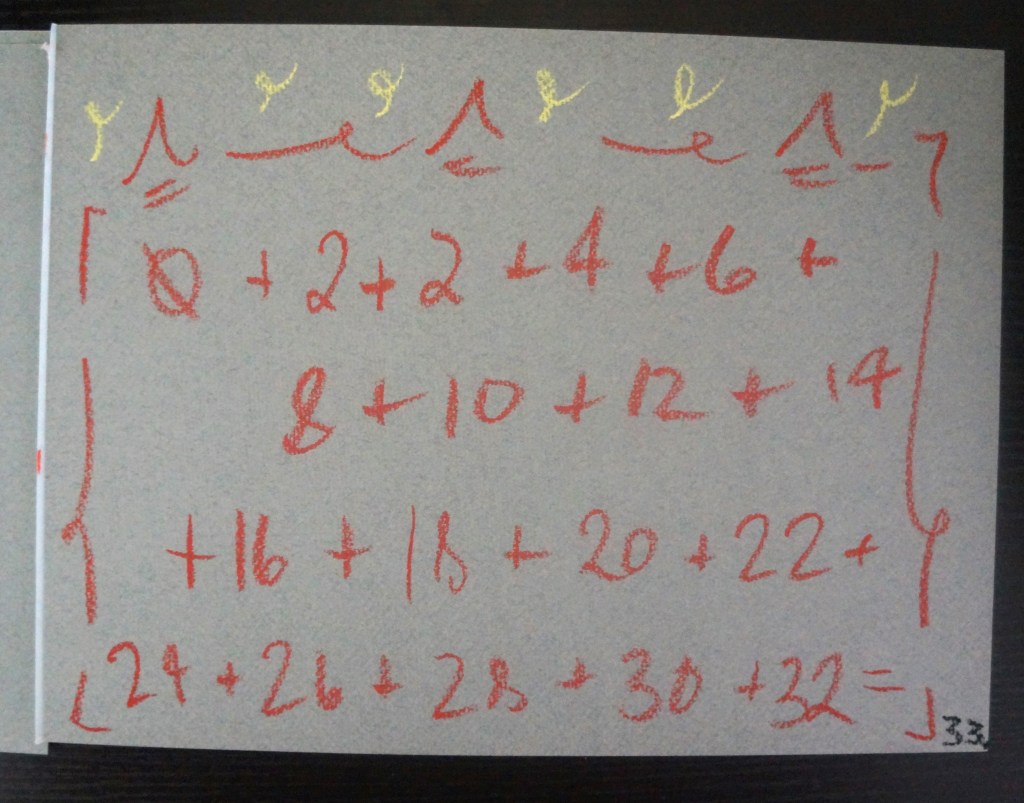 0 + 2 + 2 + 4 + 6 +
8 + 10 + 12 + 14
+ 16 + 18 + 20 + 22 +
24 + 26 + 28 + 30 + 32 =
33